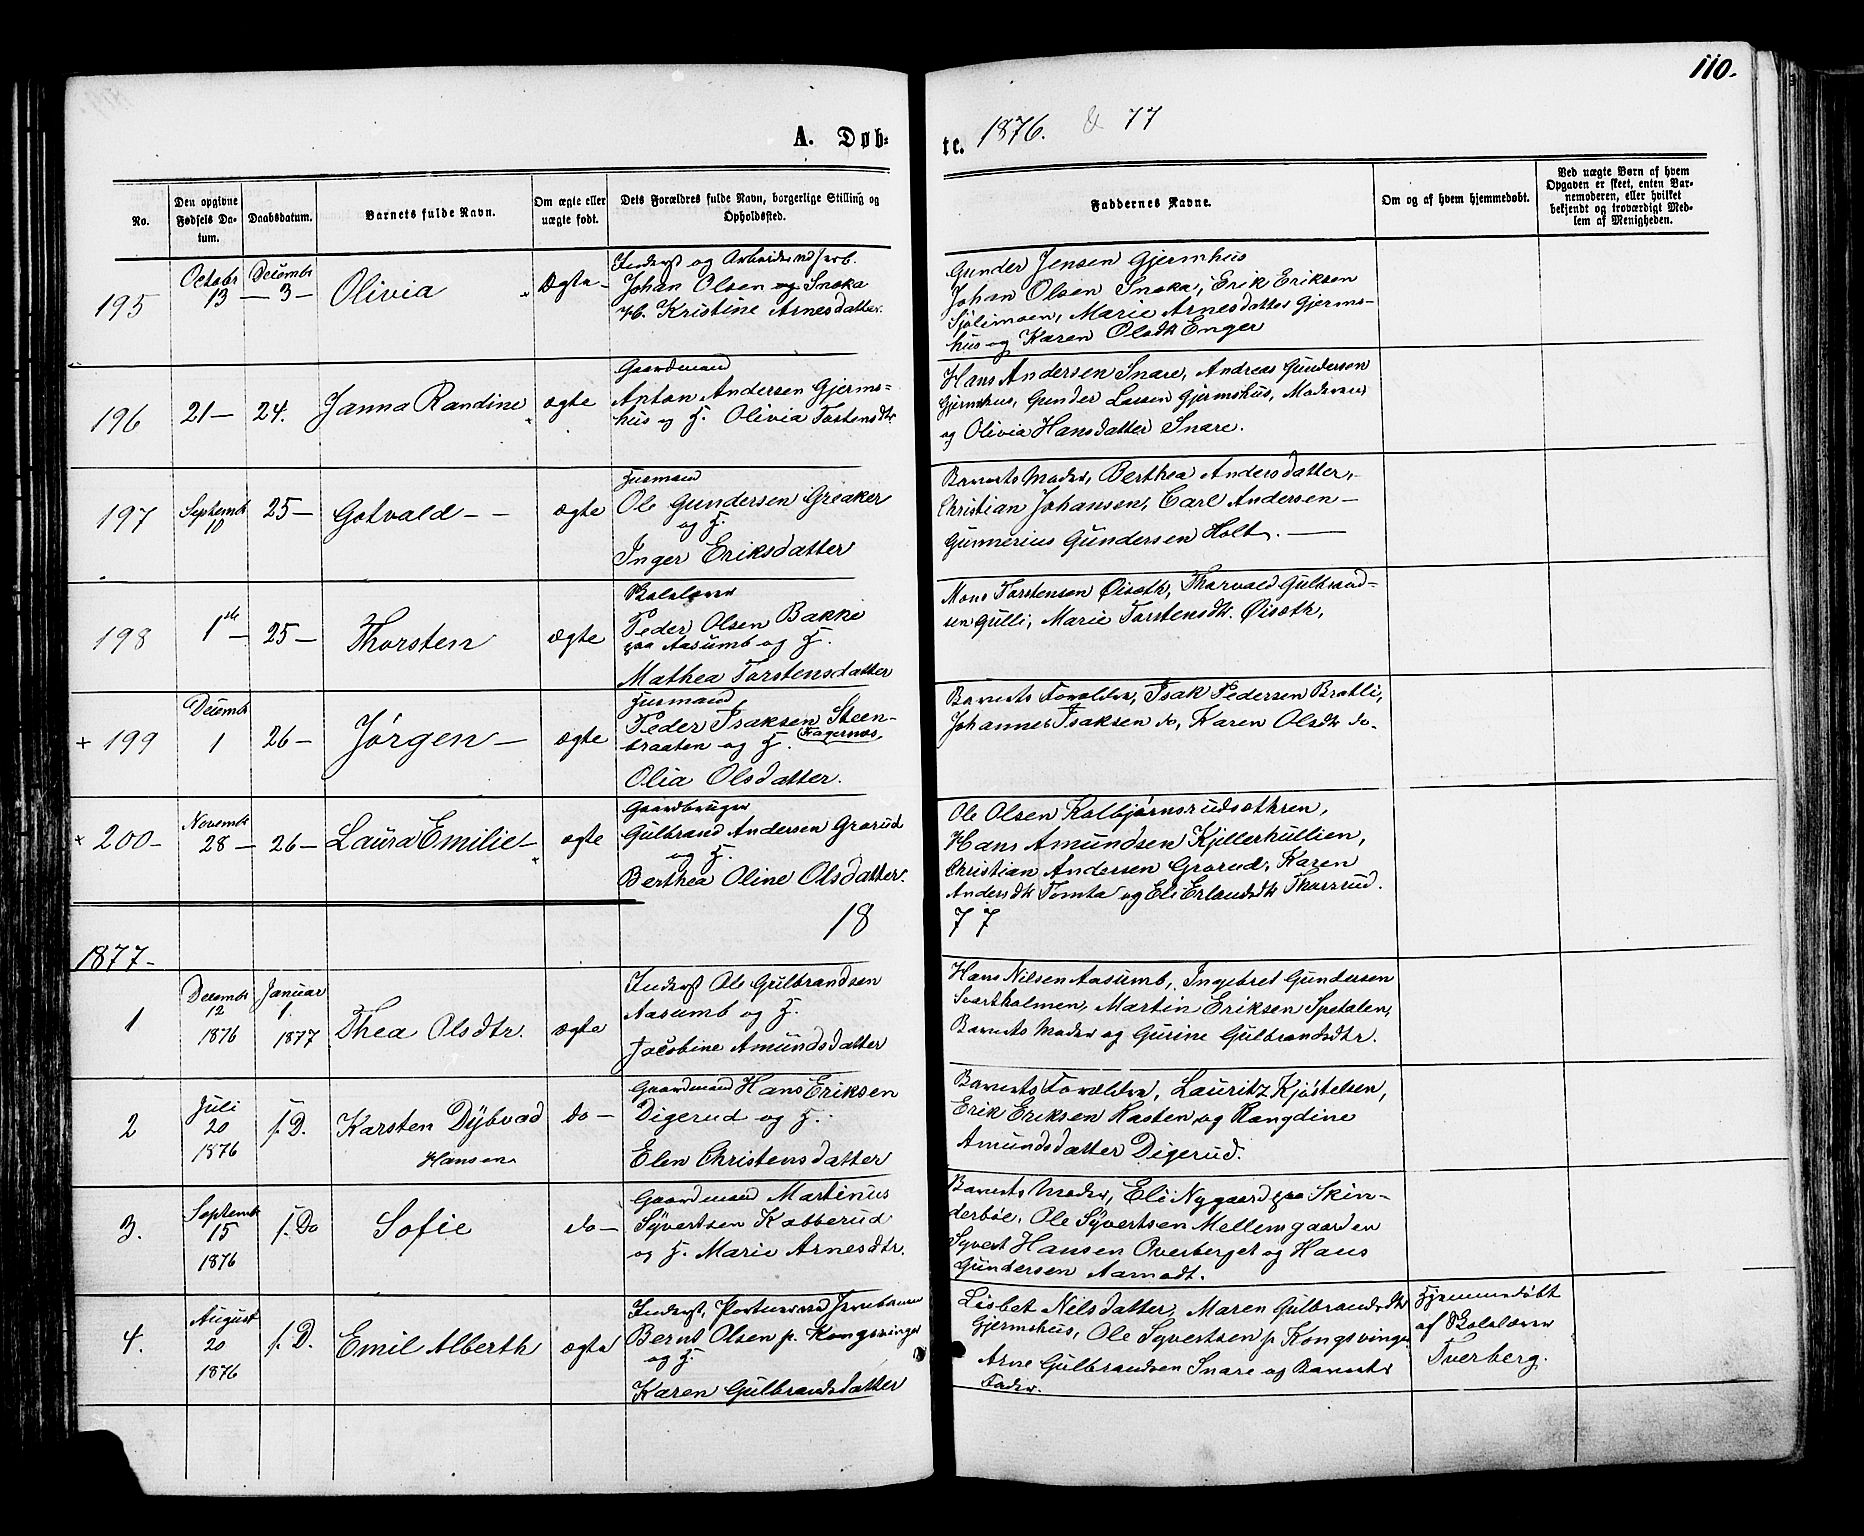 110.
A. Døb-
te. 1876. & 77
No.
Den opgivne
Fødsels Da-
tum.
Daabsdatum.
Barnets fulde Navn.
Om ægte eller
uægte født.
Dets Forældres fulde Navn, borgerlige Stilling og
Opholdssted.
Faddernes Navne.
Om og af hvem hjemmedøbt.
Ved uægte Børn af hvem
Opgaven er skeet, enten Bar-
nemoderen, eller hvilket
bekjendt og troværdigt Med-
lem af Menigheden.
195
Octobr
13 —
Decembr
3 —
Olivia
Ægte —
Inderst og Arbeider ved Jerb.
Johan Olsen Snoka
og H. Kristine Arnesdatter.
Gunder Jensen Gjermhus
Johan Olsen Snoka, Erik Eriksen
Sjølimoen, Marie Arnesdatter Gjerms-
hus og Karen Olsdtr Enger
196
21 —
24.
Janna Randine
ægte
Gaardmand
Anton Andersen Gjerms-
hus og H. Olivia Torstensdtr
Hans Andersen Snare, Andreas Gundersen
Gjermshus, Gunder Larsen Gjermshus, Moderen
og Olivia Hansdatter Snare.
197
Septembr
10
25 —
Gotvald — —
ægte
Husmand
Ole Gundersen Greaker
og H.
Inger Eriksdatter
Barnets Moder, Berthea Andersdatter,
Christian Johansen, Carl Andersen —
Gunnerius Gundersen Holt. —
198
1ste —
25 —
Thorsten
Ægte
Skolelærer
Peder Olsen Bakke
paa Aasumb og H.
Mathea Torstensdatter
Mons Torstensen Øiseth, Thorvald Gulbrand-
sen Gulli, Marie Torstensdtr. Øiseth,
+ 199
Decembr
1
26 —
Jørgen —
ægte
Husmand
Peder Isaksen Steen-
braaten og H. Fagernæs,
Olia Olsdatter.
Barnets Forældre, Isak Pedersen Bratli,
Johannes Isaksen do, Karen Olsdtr do —
+ 200 —
Novembr
28 —
26 —
Laura Emilie —
ægte
Gaardbruger
Gulbrand Andersen Grorud
og H.
Berthea Oline Olsdatter.
Ole Olsen Kolbjørnsrudsæthren,
Hans Amundsen Kjellerhullien,
Christian Andersen Grorud, Karen
Andersdtr Tomta og Eli Erlandsdtr Thorsrud.
18
77
1877 —
1
Decembr
12
1876
Januar
1.
1877
Thea Olsdtr.
ægte
Inderst Ole Gulbrandsen
Aasumb og H.
Jacobine Amundsdatter
Hans Nilsen Aasumb, Ingebret Gundersen
Svartholmen, Martin Eriksen Spetalen,
Barnets Moder og Gurine Gulbrandsdtr.
2
Juli
20
1876
s. D.
Karsten Dybvad
Hansen
do —
Gaardmand Hans Eriksen
Digerud og H.
Elen Christensdatter
Barnets Forældre, Lauritz Kjøstelsen,
Erik Eriksen Hasten og Rangdine
Amundsdatter Digerud.
3.
Septembr
15
1876
s. Do
Sofie
do —
Gaardmand Martinus
Syvertsen Kobberud
og H. Marie Arnesdtr.
Barnets Moder, Eli Nygaard paa Skin-
derbøl, Ole Syvertsen Mellemgaarden
Syvert Hansen Overberget og Hans
Gundersen Aamodt.
4.
August
20
1876
s. D.
Emil Alberth
ægte
Inderst, Portner ved Jernbanen
Bernt Olsen p. Kongsvinger
og H.
Karen Gulbrandsdatter
Lisbet Nilsdatter, Maren Gulbrandsdtr
Gjermshus, Ole Syvertsen p. Kongsvinger
Arne Gulbrandsen Snare og Barnets
Fader.
Hjemmedøbt
af Skolelærer
Tverberg.